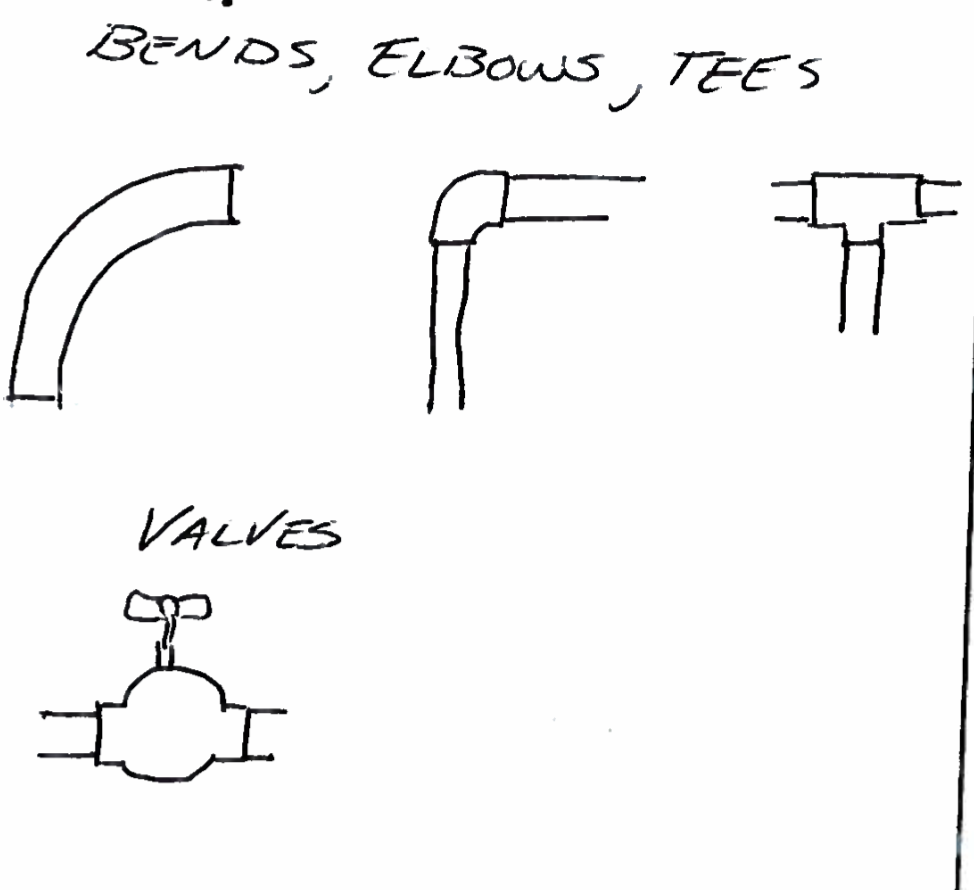 BENDS, ELBOWS, TEES
VALVES